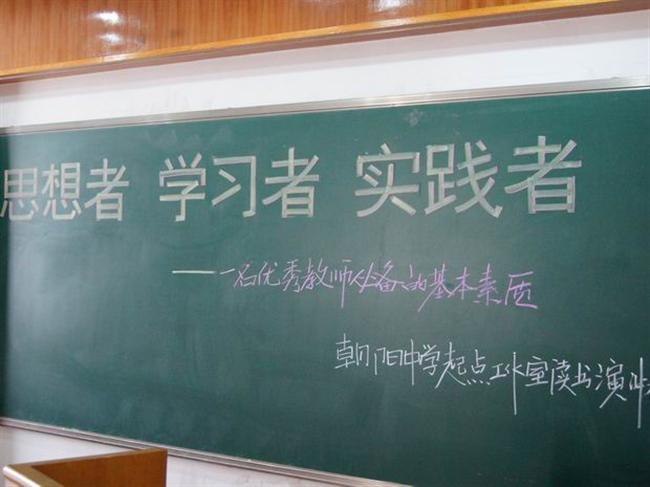 思想者 学习者 实践者
——一名优秀教师必备的基本素质
朝阳中学起点工作室读书演讲